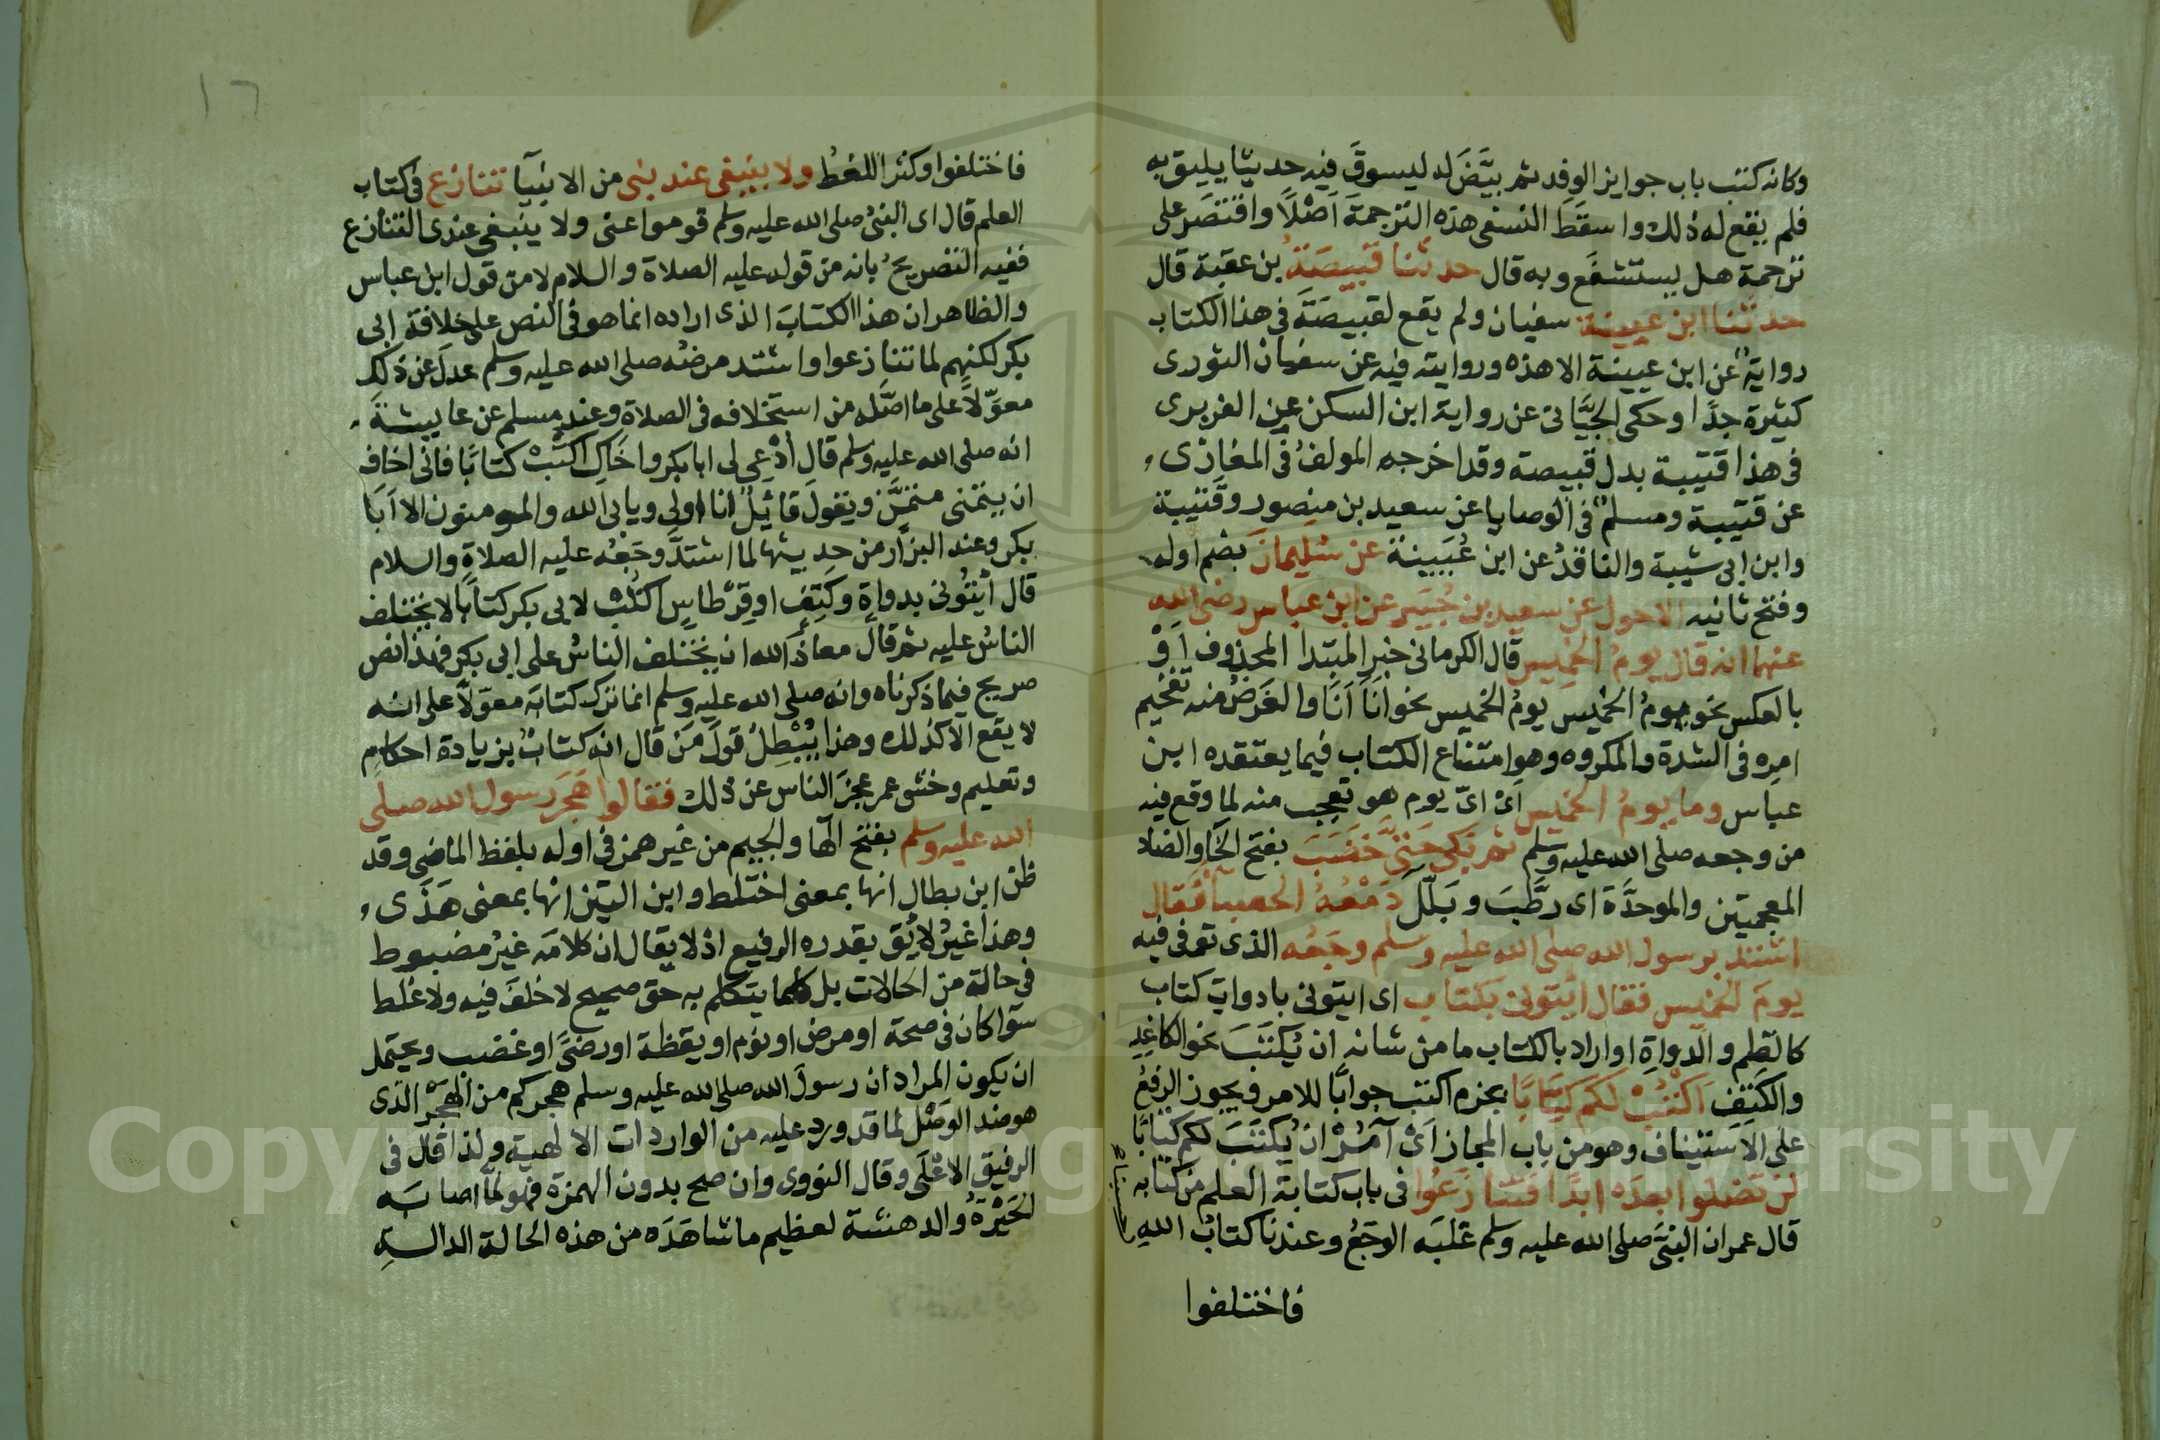 وكانه كتب باب جوايز الوفد ثم بيَّضَ له ليسوقَ فيه حديثا يليق به
فلم يقع له ذلك واسقَطَ النسفى هذه الترجمةَ اَصْلًا واقتصَر على
ترجمة هل يستشفَع وبه قال حدثنا قَبِيصَةُ بن عقبة قال
حدثنا ابن عيينة سفيان ولم يقع لقبيصَةَ فى هذا الكتاب
روايةٌ عن ابن عيينة الا هذه وروايته فيه عن سفيان الثورى
كثيرة جدًا وحكى الجيَّانى عن رواية ابن السكن عن الفربرى
فى هذا قتيبة بدل قبيصة وقد اخرجه المولفُ فى المغازى،
عن قتيبة ومسلمٌ فى الوصايا عن سعيد بن منصور وقتيبة
وابن ابى شيبة والناقدُ عن ابن عُيَيينة عن سُليمانَ بضم اوله
وفتح ثانيه الاحول عن سعيد بن جُبَير عن ابن عباس رضى الله
عنهما انه قال يومُ الخميس قال الكرمانى خبر المبتدا المحذوف اَوْ
بالعكس نحو يومُ الخميس يومُ الخميس نحو انا اَنَا والغَرَضُ منه تفخيم
امره فى الشدة والمكروه وهو امتناع الكتاب فيما يعتقده ابن
عباس وما يومُ الخميس اَىْ اىّ يوم هو تعجب منه لما وقع فيه
من وجعه صلى الله عليه وسلم ثم بَكَى حَتَّى خَضَبَ بفتح الخا والضاد
المعجمتين والموحدَّة اى رَطَّبَ وبَلّلَ دَمْعُهُ الحصبا فقال
اشتد برسول الله صلى الله عليه وسلم وجَعُه الذى توفى فيه
يومَ الخميس فقال ائتونى بكتاب اى ايتونى بادوات كتاب
كالقلم والدواةِ او اراد بالكتاب ما من شانه ان يُكتَبَ نحو الكاغدِ
والكتِفَ اَكتُبْ لكم كِتَابًا بجزم اكتب جوابًا للامر ويجوز الرفعُ
على الاستيناف وهو من باب المجاز اَىْ آمُرْ ان يُكتَبَ لكم كتابًا
لن تضلوا بعدَه ابدًا فتنازَعُوا فى باب كتابة العلم من كتابه
قال عمر ان النبىَّ صلى الله عليه وسلم غَلَبَه الوجَعُ وعندنا كتابُ اللهِ
فاختلفوا
١٦
فاختلفوا وكثر اللغطُ ولا ينبغى عند نبى من الانبيآ تنازع فى كتاب
العلم قال اى النبىُ صلى الله عليه وسلم قوموا عنى ولا ينبغى عندى التنازع
ففيه التصريحُ بانه من قوله عليه الصلاة والسلام لا من قول ابن عباس
والظاهر ان هذا الكتابَ الذى اراده انما هو فى النص على خلافة ابى
بكر لكنهم لما تنازعوا واشتد مرضُه صلى الله عليه وسلم عدلَ عن ذلك
معوّلًا على ما اصَّله من استخلافه فى الصلاة وعند مسلم عن عايشة،
انه صلى الله عليه وسلم قال اُدْعِى لى ابا بكر واخَاكِ اكتُبْ كتابًا فانى اخاف
ان يتمنى متمَنّ ويقولَ قائلٌ انا اولى ويابى الله والمومنون الا اَبَا
بكر وعند البزّار من حديثها لما اشتدَّ وجَعُه عليه الصلاةِ والسلام
قال ائْتُونى بدواةٍ وكتِفٍ او قِرْطاسٍ اكتُبْ لابى بكر كتابًا لا يختلف
الناسُ عليه ثم قال معاذَ الله ان يختلف الناسُ على ابى بكر فهذا نص
صريح فيما ذكرناه وانه صلى الله عليه وسلم انما ترك كتابَه معوّلًا على انه
لا يقع الا كذلك وهذا يُبْطِلُ قولَ مَن قال انه كتابٌ بزيادة احكامٍ
وتعليم وخشى عمر عجزَ الناس عن ذلك فقالوا هَجَر رسول الله صلى
الله عليه وسلم بفتح الها والجيم من غير همز فى اوله بلفظ الماضى وقد
ظن ابن بطال انها بمعنى اختلط وابن التين انها بمعنى هَذَى،
وهذا غيرُ لائق بقدره الرفيع اذ لا يقال ان كلامَه غيرُ مضبوط
فى حالة من الحالات بل كلما يتكلم به حق صحيح لا خلفَ فيه ولا غلط
سوا كان فى صحة او مرض او نوم او يقظة او رضًى او غضب ويحتمل
ان يكون المراد ان رسولَ الله صلى الله عليه وسلم هجركم من الهَجْر الذى
هو ضد الوَصْل لما قد ورد عليه من الواردات الالهية ولذا قال فى
الرفيق الاعْلَى وقال النووى وان صح بدون الهمزة فهو لمآ اصابَه
الحَيْرَةُ والدهشة لعظيم ما شاهَدَه من هذه الحالة الدالةِ
Copyright © King Saud University